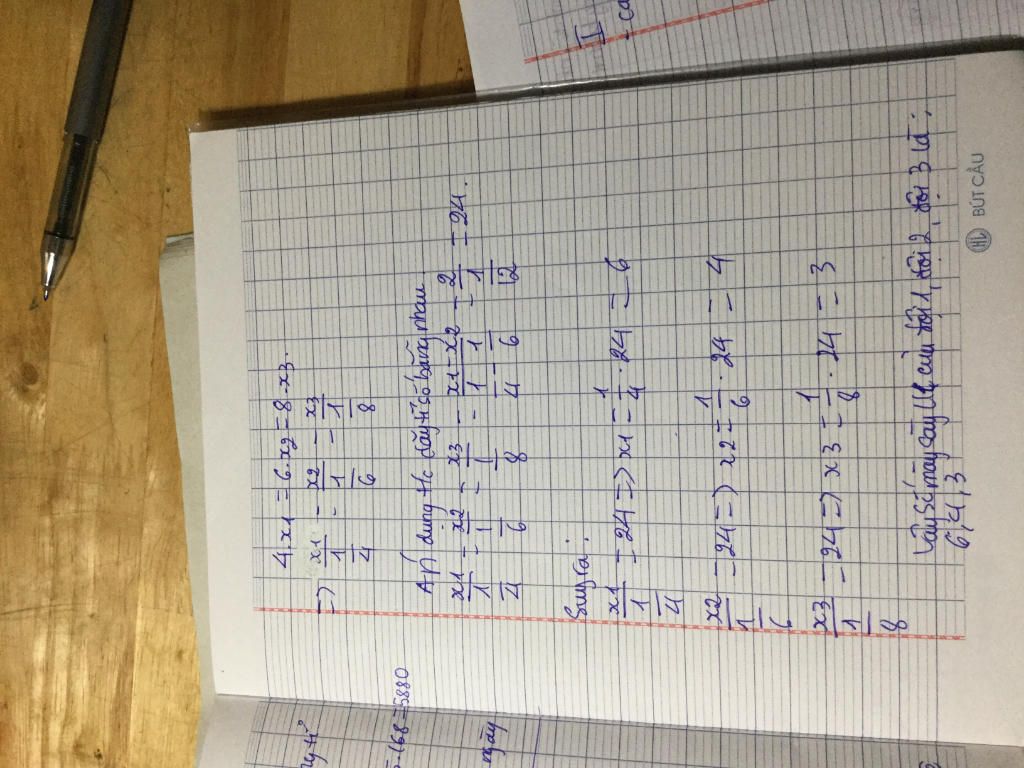 4.x1 = 6.x2 = 8.x3.
=> x1/(1/4) = x2/(1/6) = x3/(1/8)
dụng t/c dãy tỉ số bằng nhau.
x1/(1/4) = x2/(1/6) = x3/(1/8) = (x1-x2)/(1/4-1/6) = 2/(1/12) = 24.
Suy ra:
x1/(1/4) = 24 => x1 = 1/4 . 24 = 6
x2/(1/6) = 24 => x2 = 1/6 . 24 = 4
x3/(1/8) = 24 => x3 = 1/8 . 24 = 3
Vậy số máy đội 1, đội 2, đội 3 là:
6, 4, 3
HL BÚT CẦU
168 = 5880
ngày
I